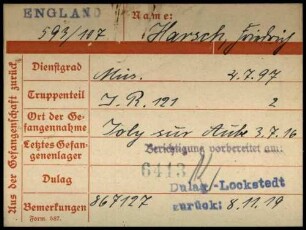 ENGLAND Name:
593/107 Harsch, Fridrich
Dienstgrad Mus. 4.7.97
Truppenteil I.R. 121 2
Ort der Ge-
fangennahme Joly sur Aube 3.7.16
Letztes Gefan-
genenlager Berichtigung vorbereitet am:
6413
Dulag Dulag-Lockstedt
zurück: 8.11.19
Bemerkungen 867127
Form. 587.
Aus der Gefangenschaft zurück